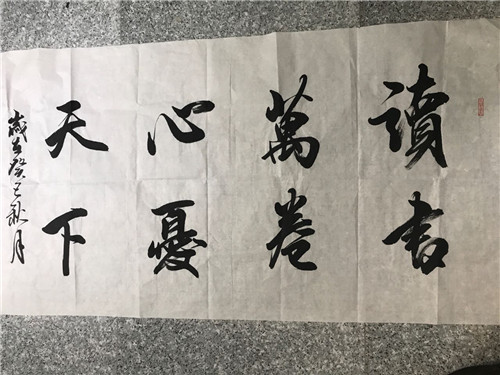 讀書
萬卷
心憂
天下
歲在癸巳秋月